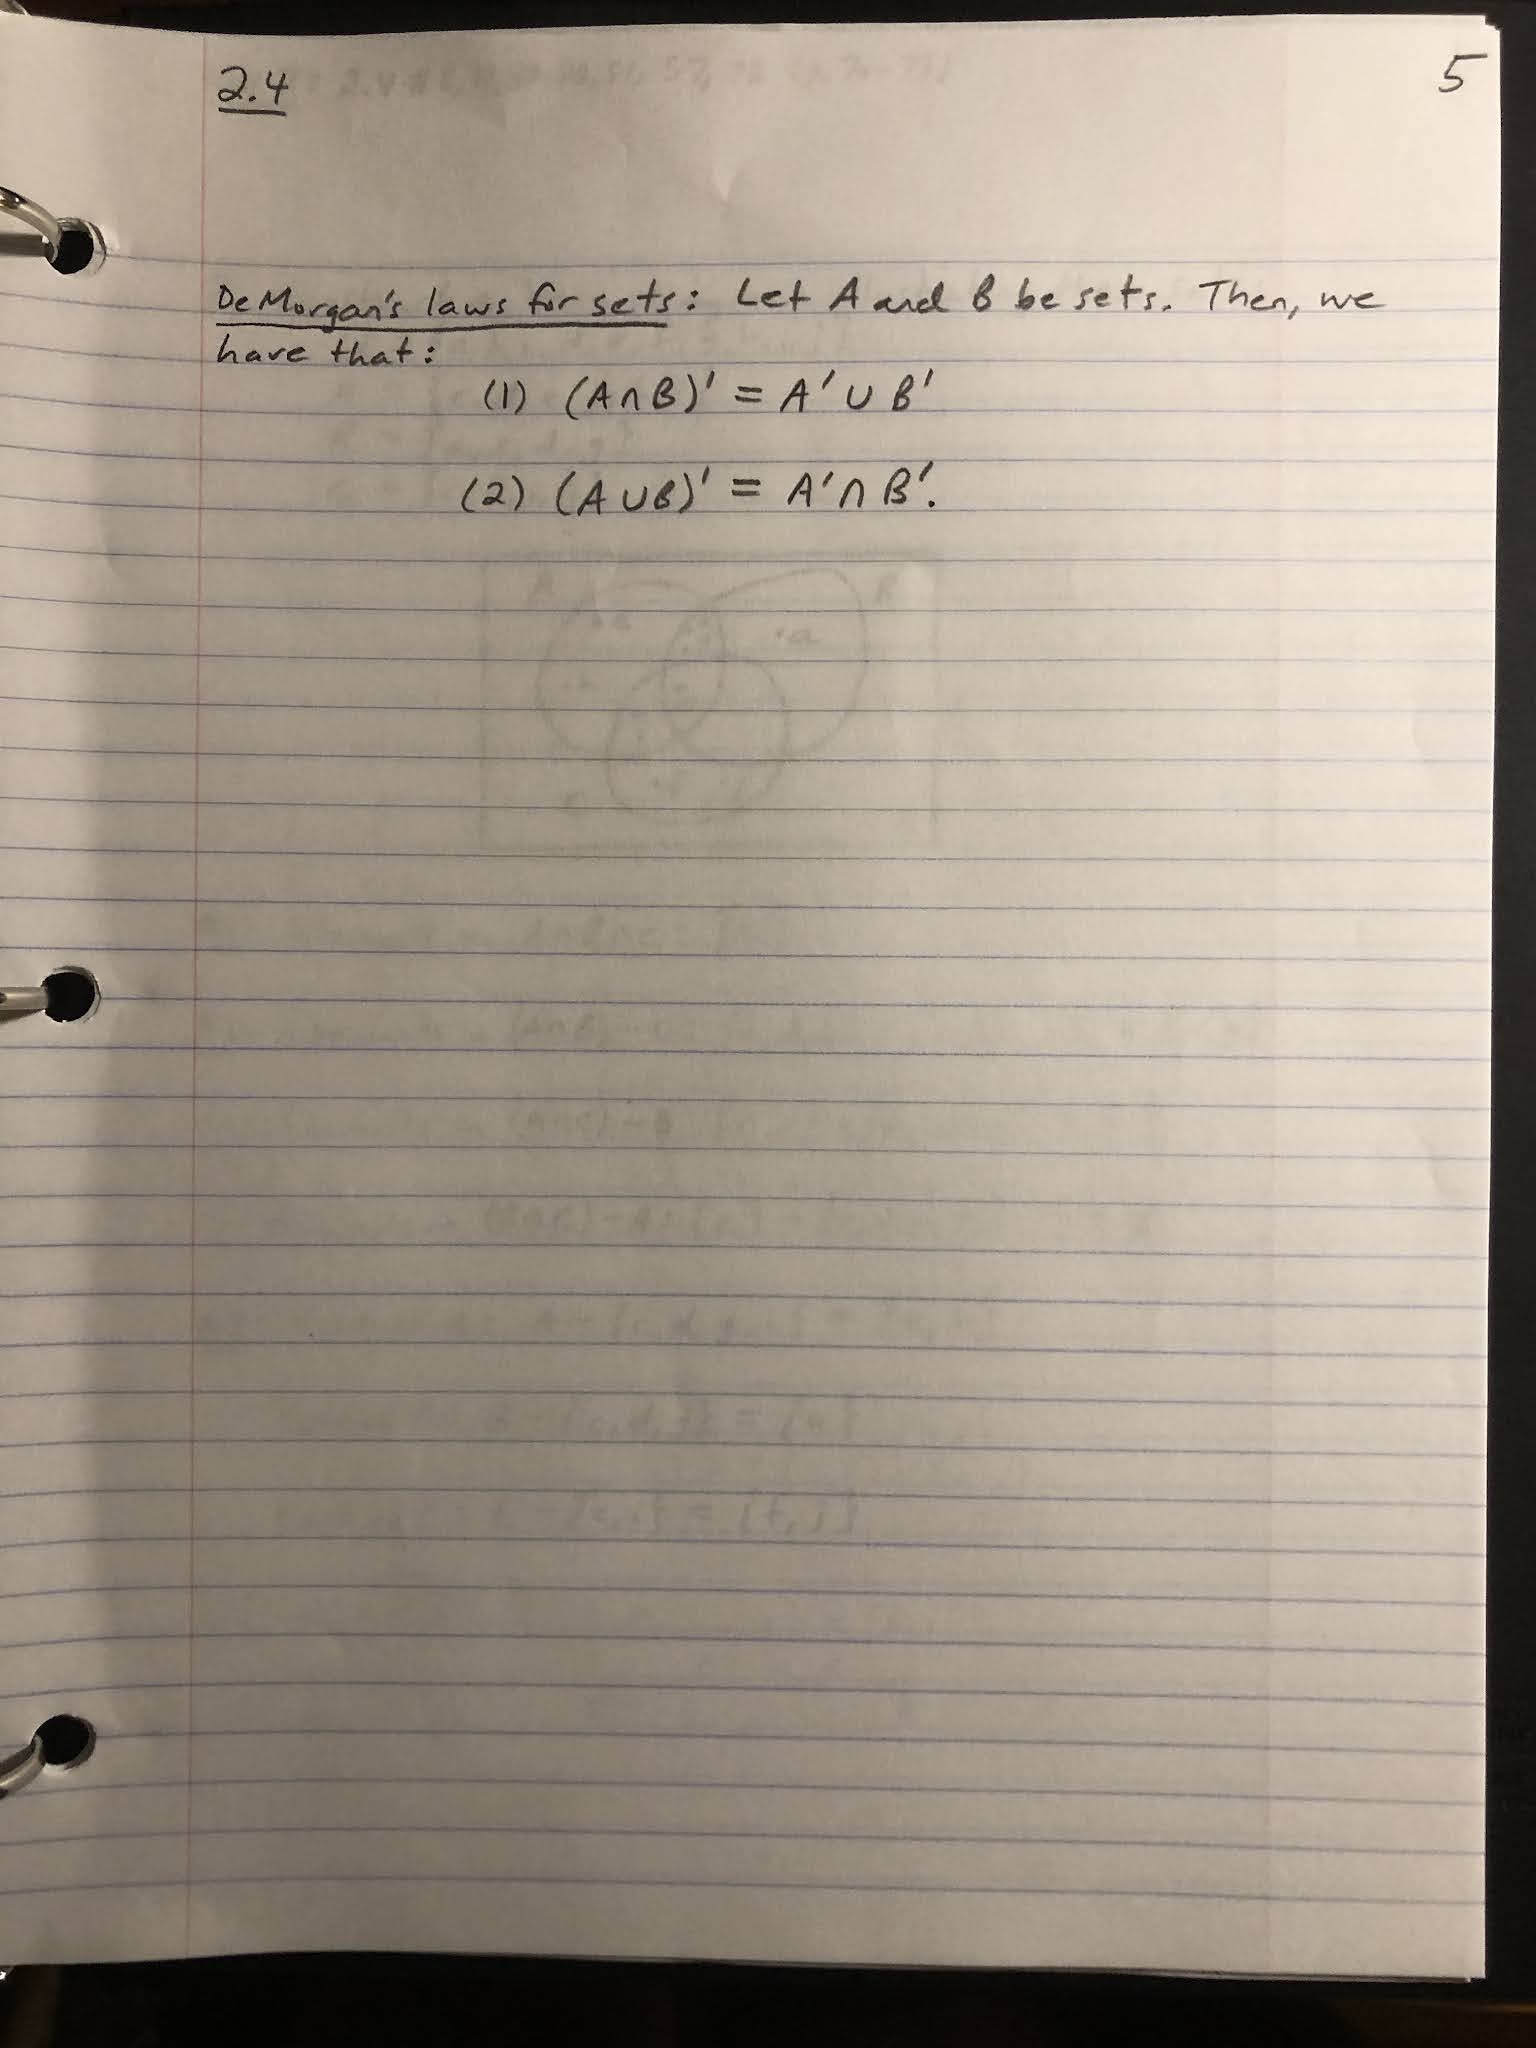 2.4
5
DeMorgan's laws for sets: Let A and B be sets. Then, we
have that:
(1) (A∩B)' = A' ∪ B'
(2) (A∪B)' = A' ∩ B'.